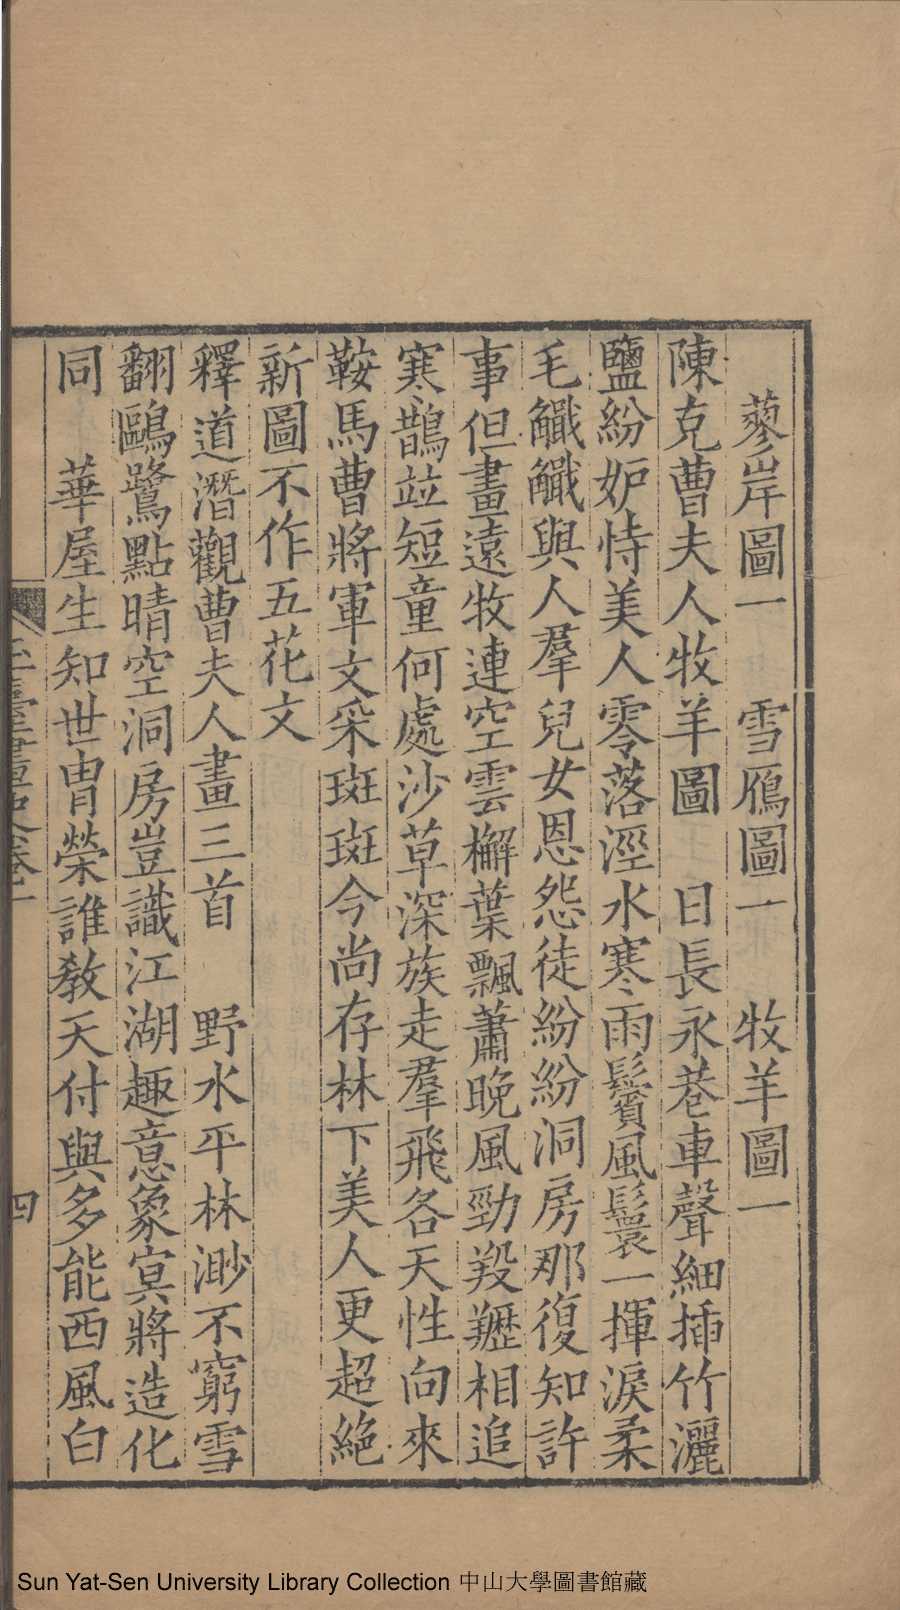 蓼岸圖一　雪鴈圖一　牧羊圖一
陳克曹夫人牧羊圖　日長永巷車聲細插竹灑
鹽紛妒恃美人零落涇水寒雨鬢風鬟一揮淚柔
毛觿觿與人羣兒女恩怨徒紛紛洞房那復知許
事但畫遠牧連空雲檞葉飄蕭晚風勁羖䍽相追
寒鵲竝短童何處沙草深族走羣飛各天性向來
鞍馬曹將軍文采斑斑今尚存林下美人更超絕
新圖不作五花文
釋道潛觀曹夫人畫三首　野水平林渺不窮雪
翻鷗鷺點晴空洞房豈識江湖趣意象冥將造化
同　華屋生知世胄榮誰敎天付與多能西風白
玉臺畫史卷一
四
Sun Yat-Sen University Library Collection 中山大學圖書館藏